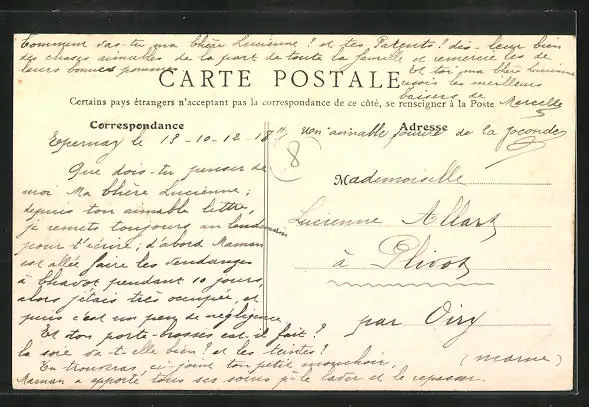 Comment vas-tu, ma Chère Lucienne ? et tes Parents ? dis-leur bien
des choses aimables de la part de toute la famille et remercie les de
leurs bonnes pommes.
Et toi ma chère Lucienne
reçois les meilleurs
baisers de Marcelle
CARTE POSTALE
Certains pays étrangers n'acceptent pas la correspondance de ce côté, se renseigner à la Poste
Correspondance
Epernay le 13-10-12-18
Que dois-tu penser de
moi Ma Chère Lucienne ;
depuis ton aimable lettre
je remets toujours au lendemain
pour t'écrire ; d'abord Maman
est allée faire les vendanges
à Chavot pendant 10 jours,
alors j'étais très occupée, et
puis c'est un peu de négligence
Et ton porte-brosses est-il fait ?
la soie va-t-elle bien ? et les teintes ?
Tu trouveras, ci-joint ton petit mouchoir,
Maman a apporté tous ses soins p. le laver et le repasser.
Adresse
Un aimable sourire de la Joconde
8
Mademoiselle
Lucienne Allart
à Plivot
par Oiry
(Marne)